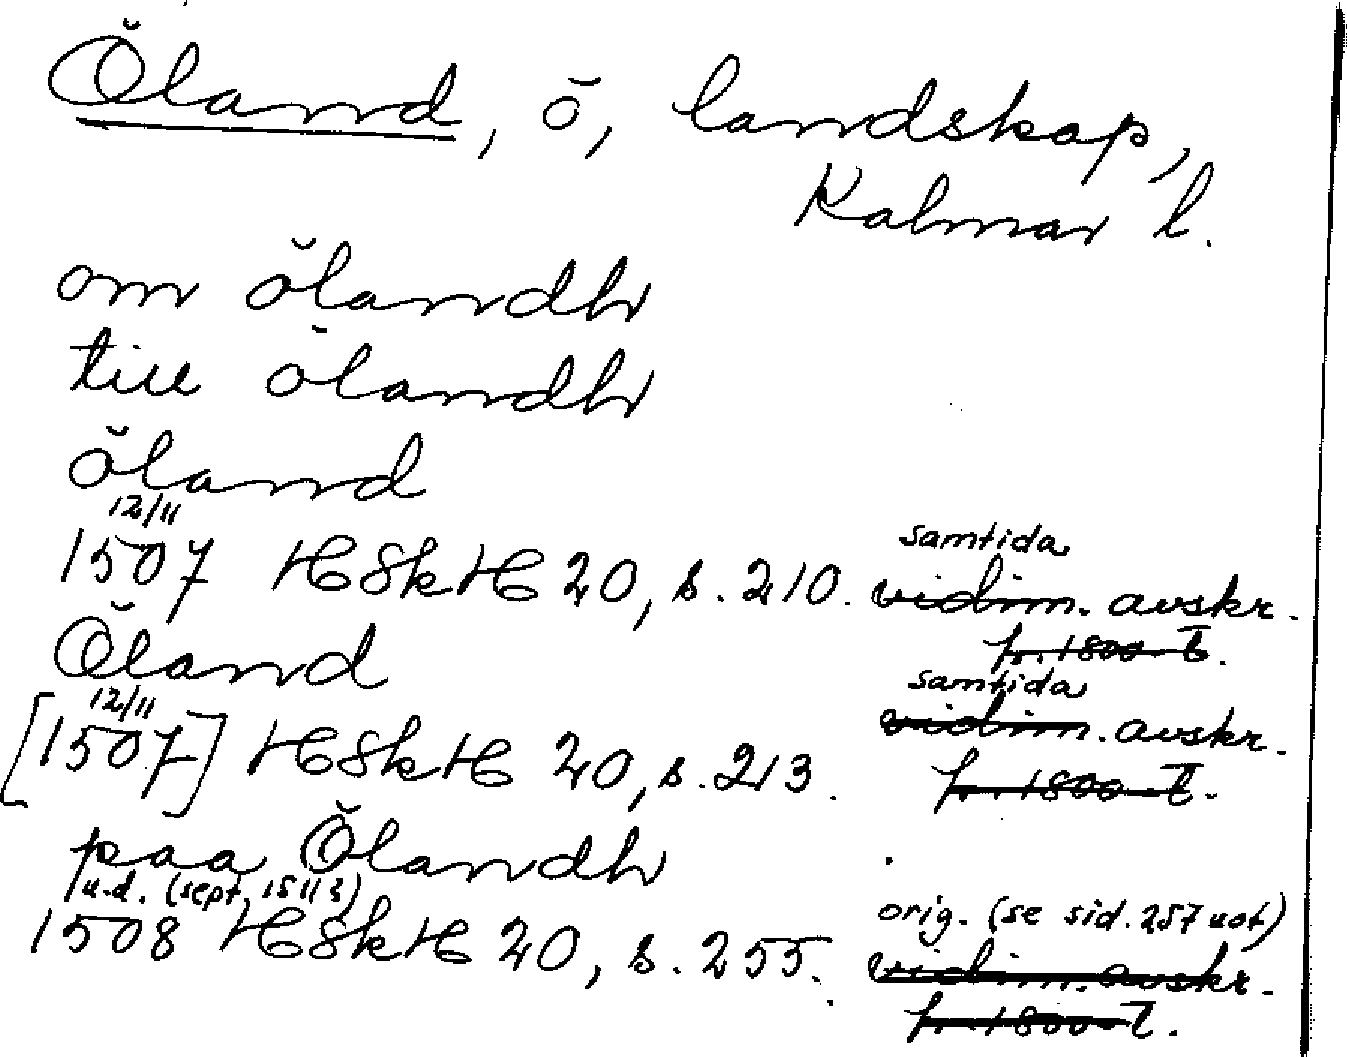 Öland, ö, landskap,
Kalmar l.
om ölandh
till ölandh
öland
12/11
samtida
1507 HSkH 20, s. 210. vidim. avskr.
fr. 1800-t.
Öland
12/11
samtida
[1507] HSkH 20, s. 213. vidim. avskr.
fr. 1800-t.
paa Ölandh
u.d. (sept.
orig. (se sid. 257 not)
1508 HSkH 20, s. 255. vidim. avskr.
fr. 1800-t.